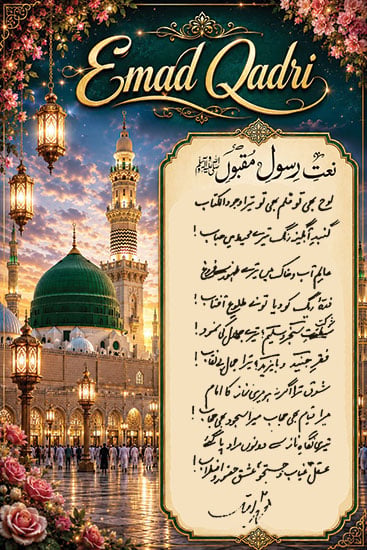 Emad Qadri
نعتِ رسول مقبول ﷺ
لوح بھی تو قلم بھی تو تیرا وجود الکتاب
گنبدِ آبگینہ رنگ تیرے محیط میں حباب!
عالمِ آب و خاک میں تیرے ظہور سے فروغ
ذرۂ ریگ کو دیا تو نے طلوعِ آفتاب!
شوکتِ سنجر و سلیم تیرے جلال کی نمود!
فقرِ جنید و بایزید تیرا جمال بے نقاب!
شوق ترا اگر نہ ہو میری نماز کا امام
میرا قیام بھی حجاب میرا سجود بھی حجاب!
تیری نگاہِ ناز سے دونوں مراد پا گئے
عقل غیاب و جستجو عشق حضور و اضطراب!